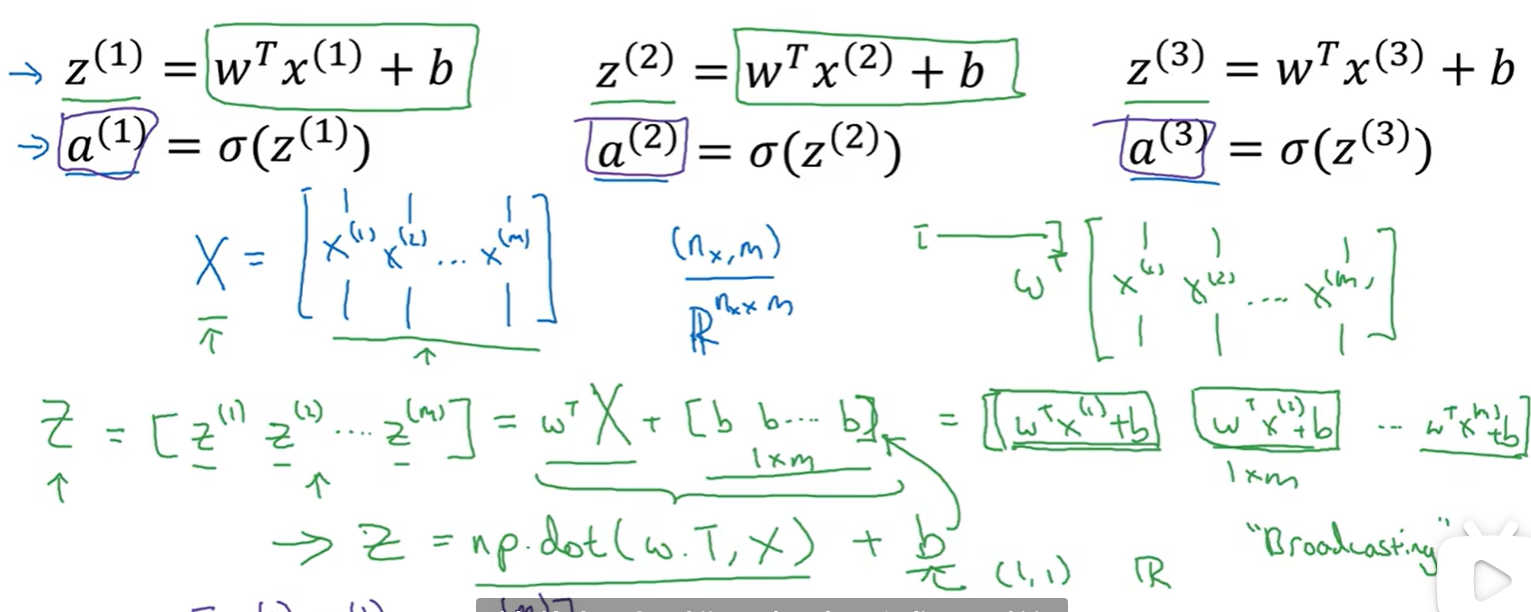 → z^(1) = w^T x^(1) + b z^(2) = w^T x^(2) + b z^(3) = w^T x^(3) + b
→ a^(1) = σ(z^(1)) a^(2) = σ(z^(2)) a^(3) = σ(z^(3))
X = [x^(1) x^(2) ... x^(m)] (n_x, m) w^T [x^(1) x^(2) .... x^(m)]
ℝ^(n_x × m)
Z = [z^(1) z^(2) .... z^(m)] = w^T X + [b b .... b] = [w^T x^(1)+b w^T x^(2)+b ... w^T x^(m)+b]
1×m 1×m
→ Z = np.dot(w.T, X) + b (1,1) ℝ "Broadcasting"